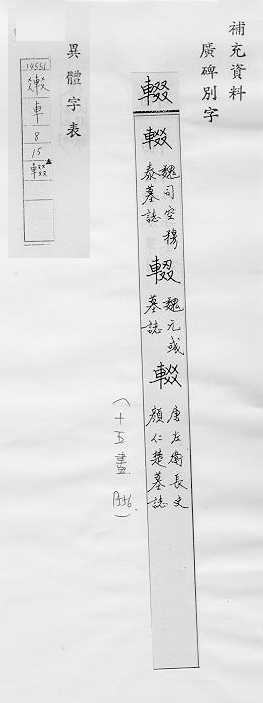 補充資料
廣碑別字
輟
輟
魏司空穆
泰墓誌
輟
魏元彧
墓誌
唐左衛長史
顏仁楚墓誌
（十五畫 P.556.）
異體字表
車
8
15
輟